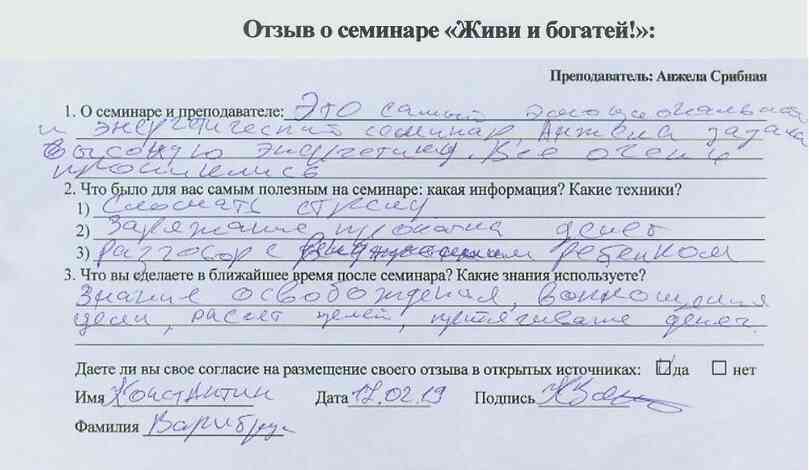 Отзыв о семинаре «Живи и богатей!»:
Преподаватель: Анжела Срибная
1. О семинаре и преподавателе: Это самый эмоциональный
и энергетический семинар, Анжела задала
высокую энергетику. Все очень
прониклись
2. Что было для вас самым полезным на семинаре: какая информация? Какие техники?
1) Сломать стрелу
2) Заряжание денег
3) Разговор с ребенком
3. Что вы сделаете в ближайшее время после семинара? Какие знания используете?
Знание освобождения, воплощения
цели, расчет целей, притягивание денег.
Даете ли вы свое согласие на размещение своего отзыва в открытых источниках: да нет
Имя Константин Дата 17.02.19 Подпись
Фамилия